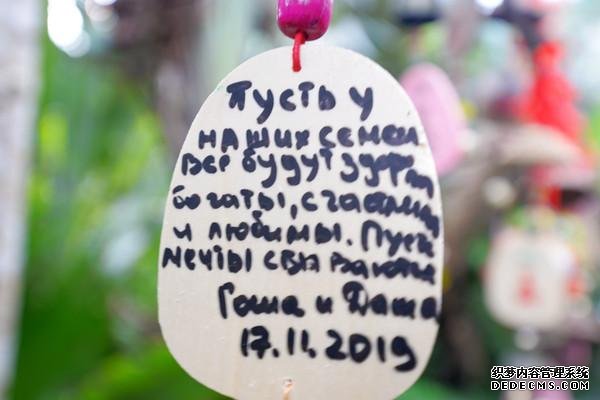 Пусть у
наших семей
все будут здоровы
богаты, счастливы
и любимы. Пусть
мечты сбываются
Гоша и Даша
17.11.2019
织梦内容管理系统
DEDECMS.COM